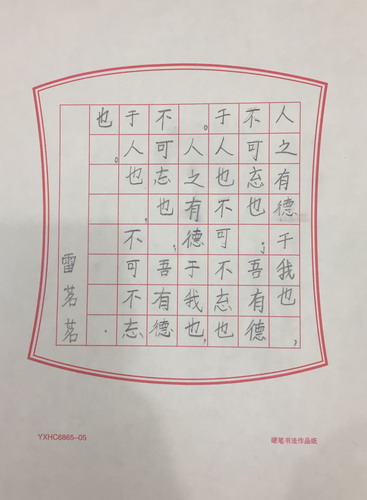 人之有德于我也，
不可忘也；吾有德
于人也不可不忘也
。人之有德于我也，
不可忘也；吾有德
于人也，不可不忘
也。
雷茗茗
YXHC6865-05
硬笔书法作品纸